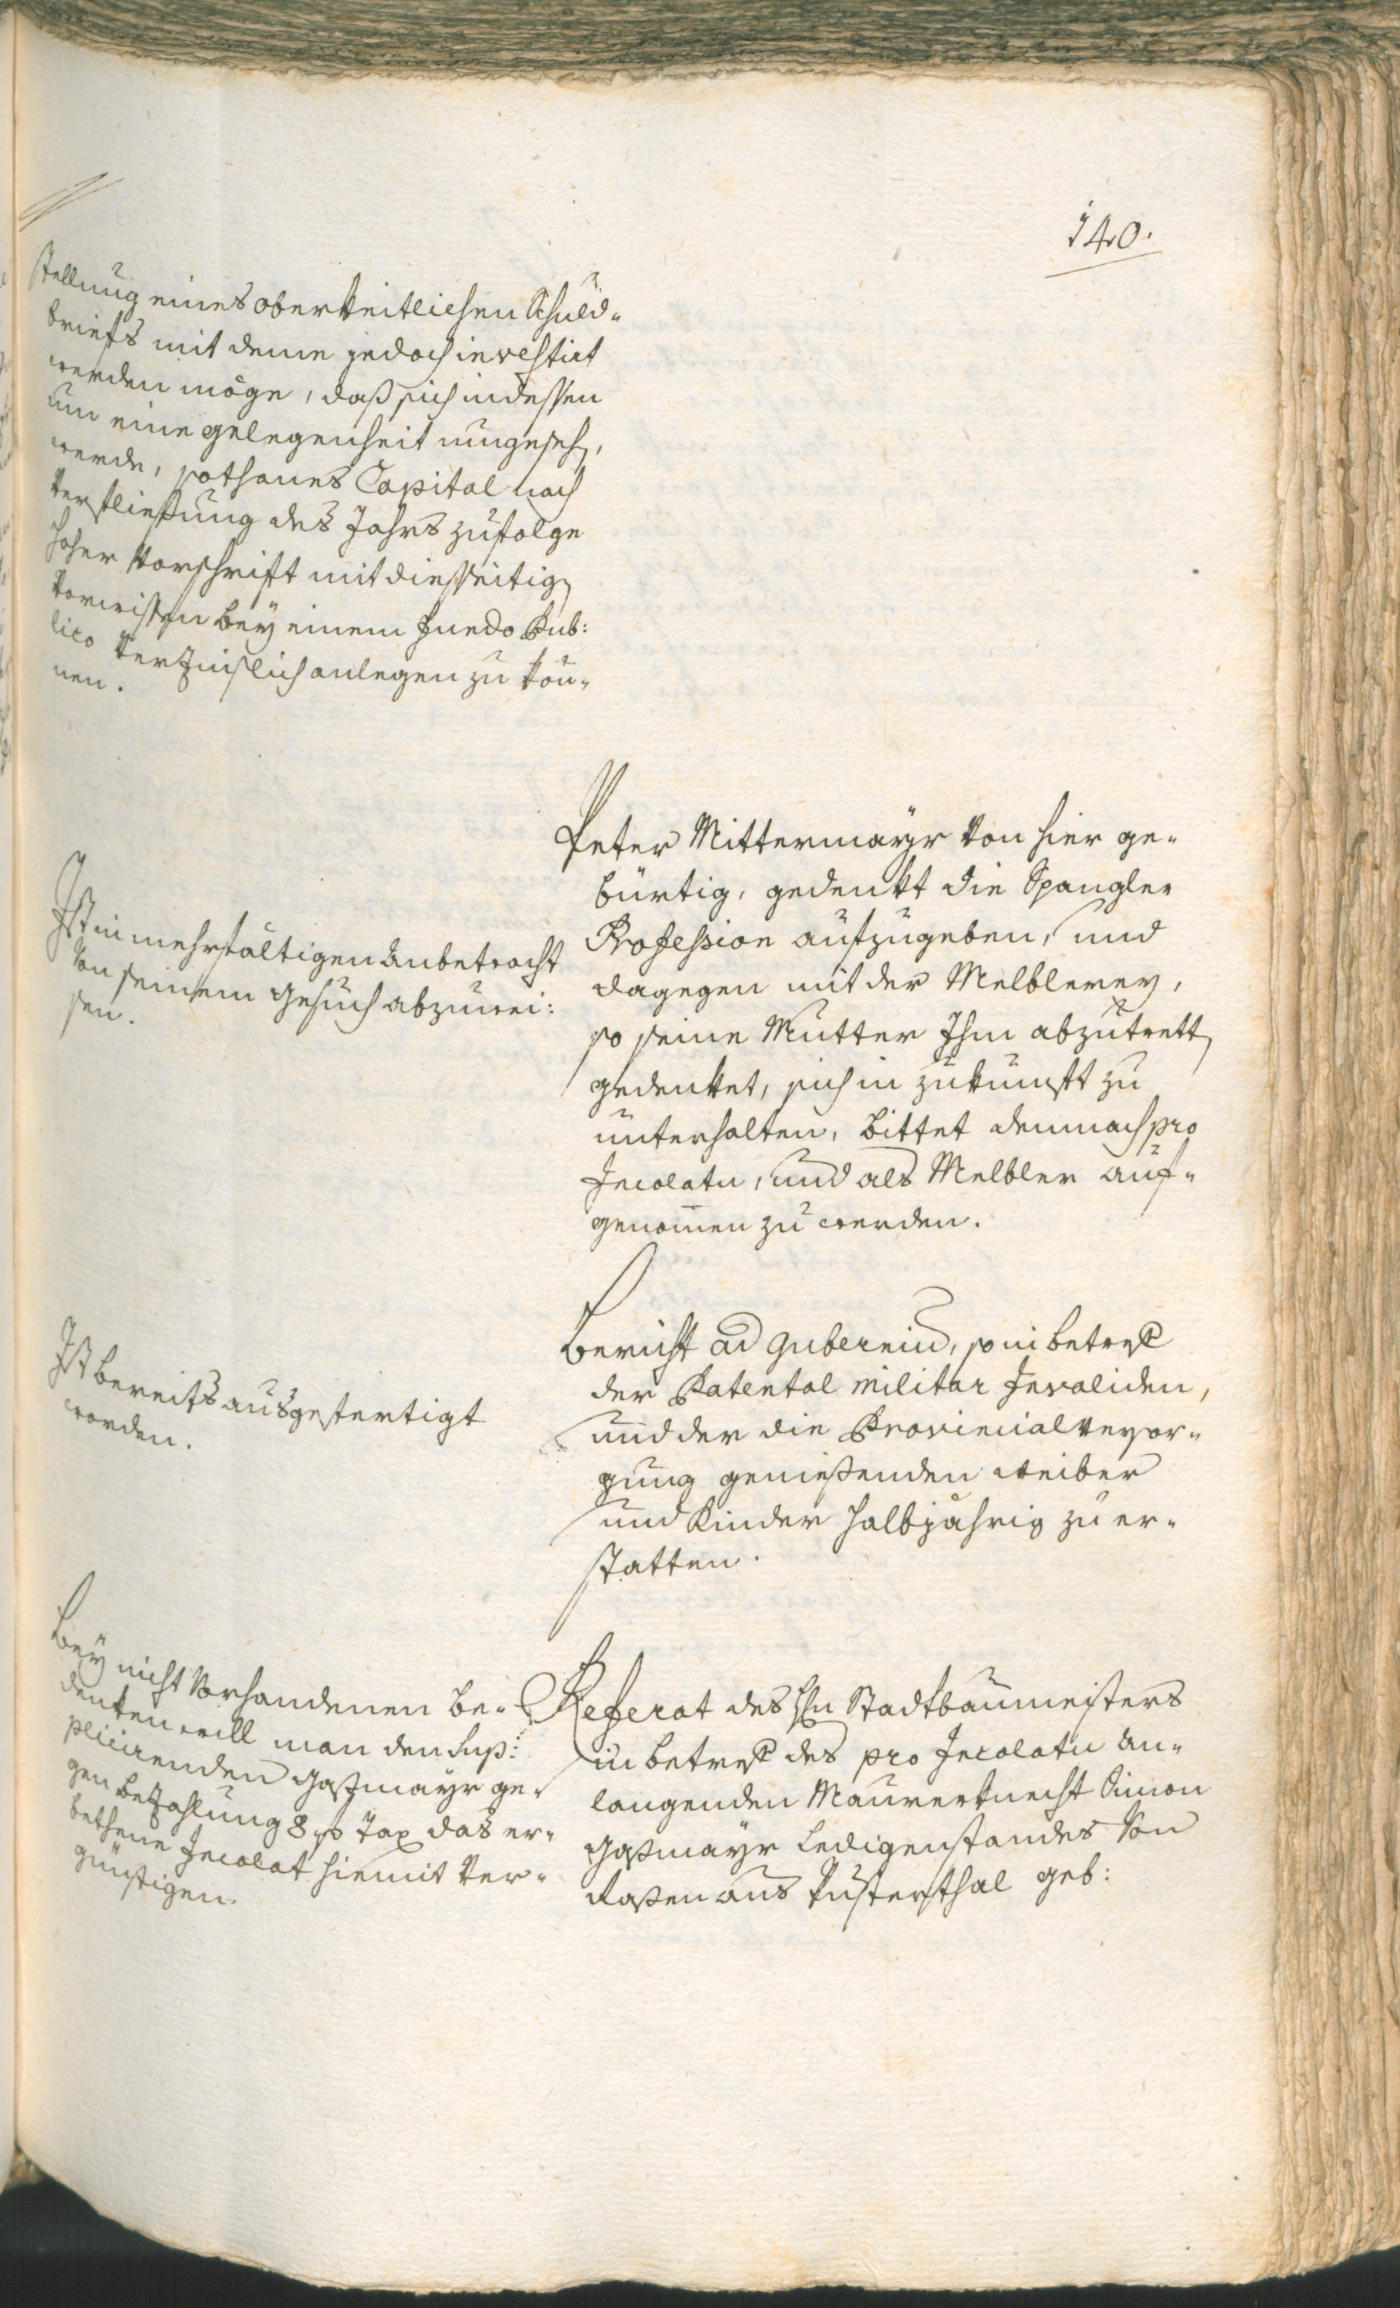 140.
stellung eines oberkeitlichen Schuld-
briefs mit deme jedoch investirt
werden möge, daß sich indessen
um eine gelegenheit umgeseh,
werde, sothanes Capital nach
Verfliessung des Jahrs zufolge
hoher Vorschrift mit diesseitig
Vorwissen bey einem Fundo Pub:
lico Verzinslich anlegen zu kön-
nen.
Peter Mittermayr Von hier ge-
bürtig, gedenkt die Spangler
Profession aufzugeben, und
dagegen mit der Melblerey,
so seine Mutter Ihm abzutrett
gedenket, sich in zukunft zu
unterhalten, bittet demnach pro
Incolatu, und als Melbler auf-
genomen zu werden.
Ist in mehrfältigen Anbetracht
Von seinem Gesuch abzuwei:
sen.
Bericht ad Gubernium, so in betreff
der Patental Militar Invaliden,
und der die Provincial Versor-
gung geniessenden Weiber
und Kinder halbjährig zu er-
statten.
Ist bereits ausgefertigt
worden.
Referat des Hn Stadtbaumeisters
in betreff des pro Incolatu an-
langenden Maurerknecht Simon
Gaßmayr ledigenstandes Von
Raßen aus Pusterthal geb:
Bey nicht Vorhandenen be-
denken will man den Sup:
plicirenden Gaßmayr ge-
gen bezahlung 8 f Tax das er-
bethene Incolat hiemit Ver-
günstigen.